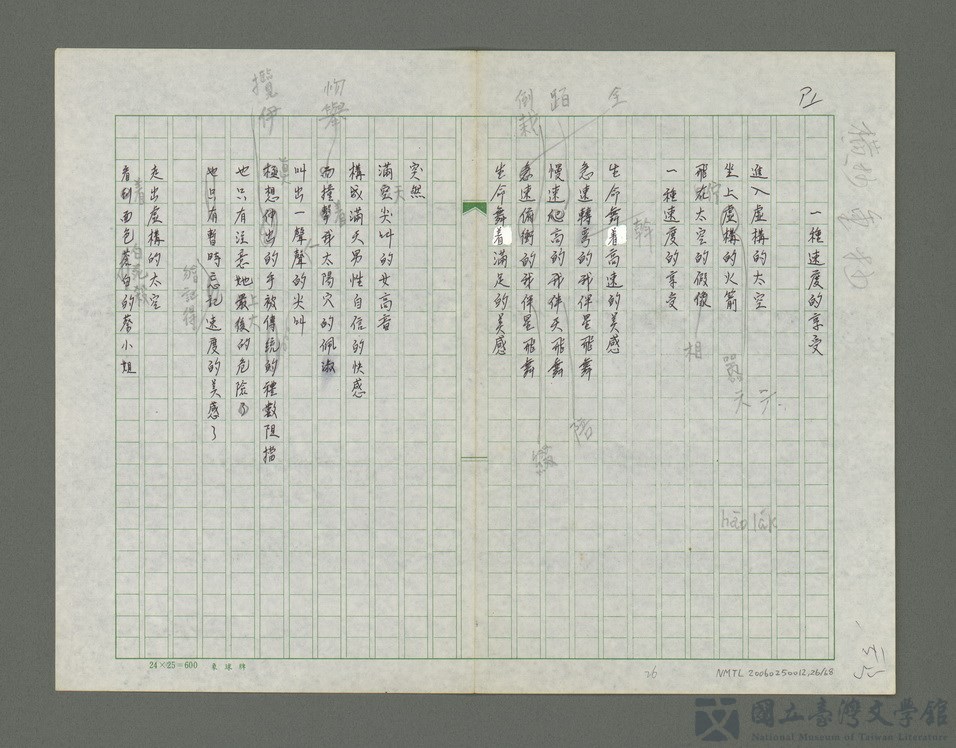 P1
一種速度的享受
進入虛構的太空
坐上虛構的火箭
飛在太空的假像
一種速度的享受
生命舞着高速的美感
急速轉彎的我伴星飛舞
慢速爬高的我伴天飛舞
急速俯衝的我伴星飛舞
生命舞着滿足的美感
突然
滿空尖叫的女高音
構成滿天男性自信的快感
而撞擊我太陽穴的佩淑
叫出一聲聲的尖叫
極想伸出的手被傳統的禮數阻擋
也只有注意她最後的危險了
也只有暫時忘記速度的美感了
走出虛構的太空
看到面色蒼白的蔡小姐
仝
蹈
倒栽
攬伊
相
天
hāo lák
24×25=600
26
NMTL 20060250012,26/28
國立臺灣文學館
National Museum of Taiwan Literature